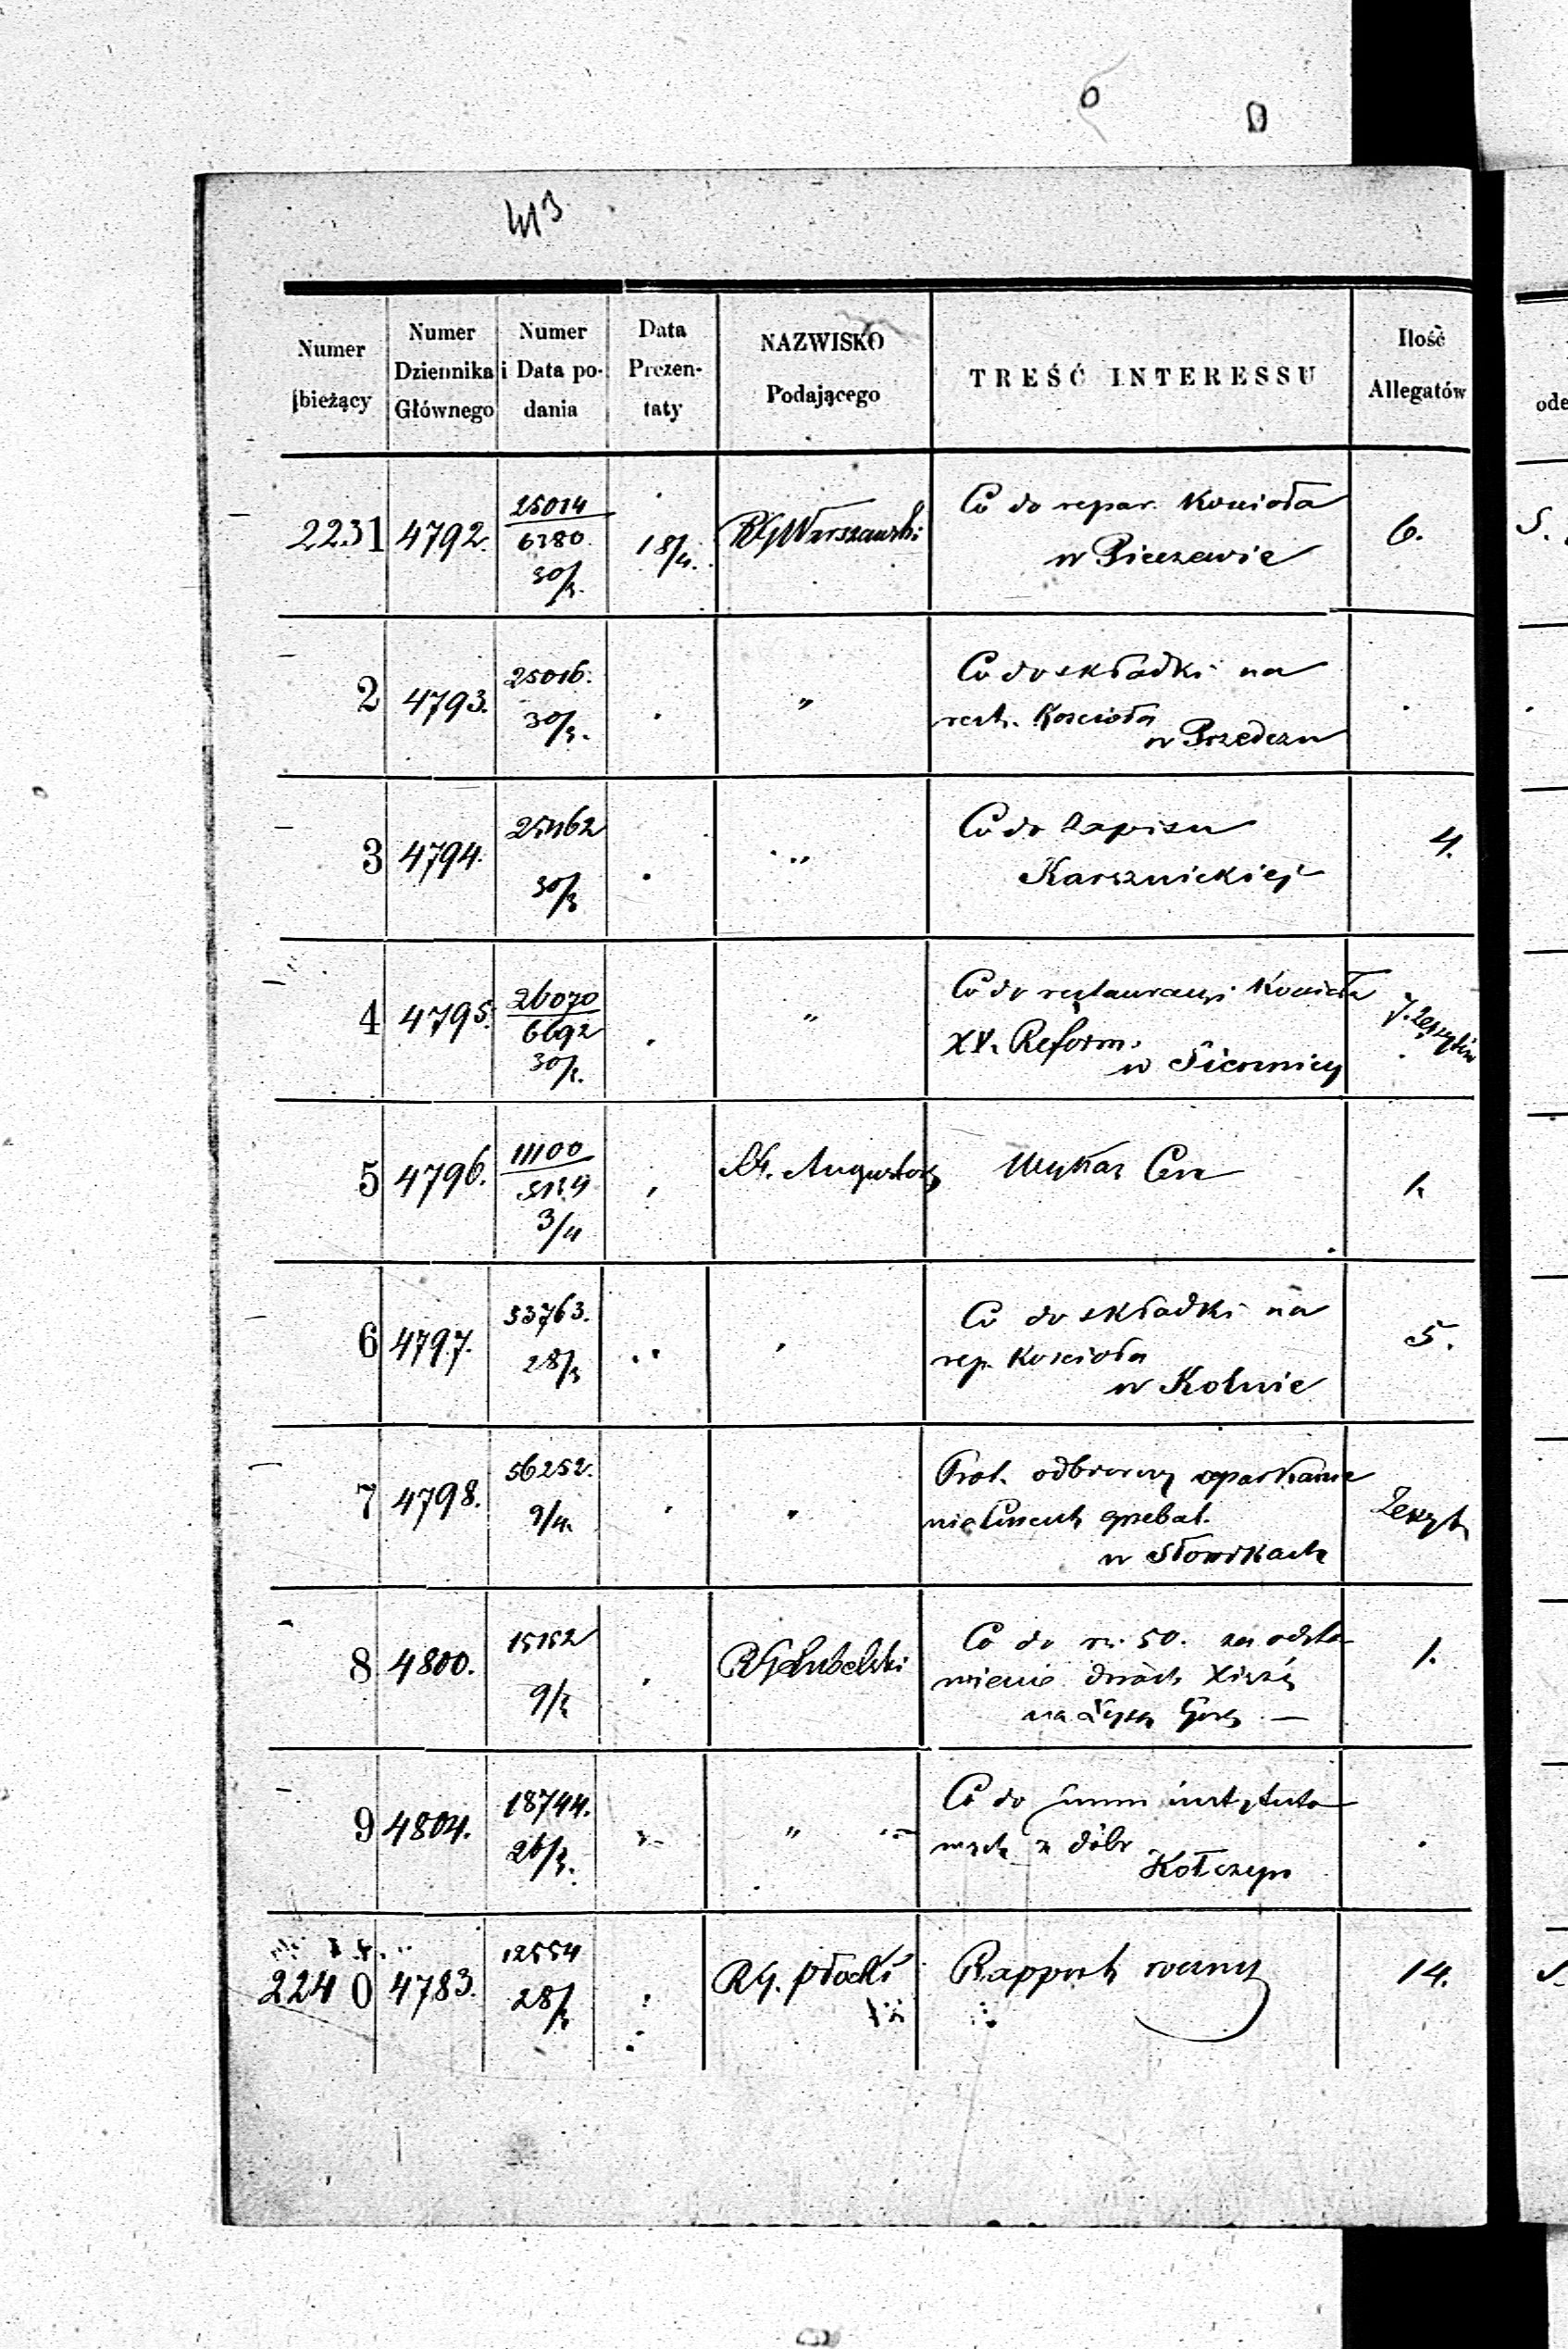 413
Numer bieżący | Numer Dziennika Głównego | Numer i Data podania | Data Prezentaty | NAZWISKO Podającego | TREŚĆ INTERESSU | Ilość Allegatów
2231 4792. 25014 18/4. RG Warszawski Co do repar. Kościoła 6.
6380. w
30/3.
2 4793. 25016. " Co do składki na
30/3. rest. Kościoła
w Przedczu
3 4794. 30/3 " Co do zapisu 4.
Karsznickiej
4 4795. 26070 " Co do restauracyi Kościoła
6692 XX. Reform.
30/3. w
5 4796. 11100 RG. Augustow Wykaz Cen 1.
3/4
6 4797. 53763. Co do składki na 5.
28/3 rep. Kościoła
w Kolnie
7 4798. 56252. Prot. odbiorczy oparkanie Zeszyt
9/4. nia Cment. grzebal.
w
8 4800. 15152 RG Lubelski Co do rs. 50. za odsta 1.
9/3 wienie dwóch Xięży
na Łysą Górę —
9 4804. 18744. " Co do Summ instytuto
26/3. wych z dóbr
Kołczyn
2240 4783. 12554 RG. Płocki Rapport roczny 14.
28/3